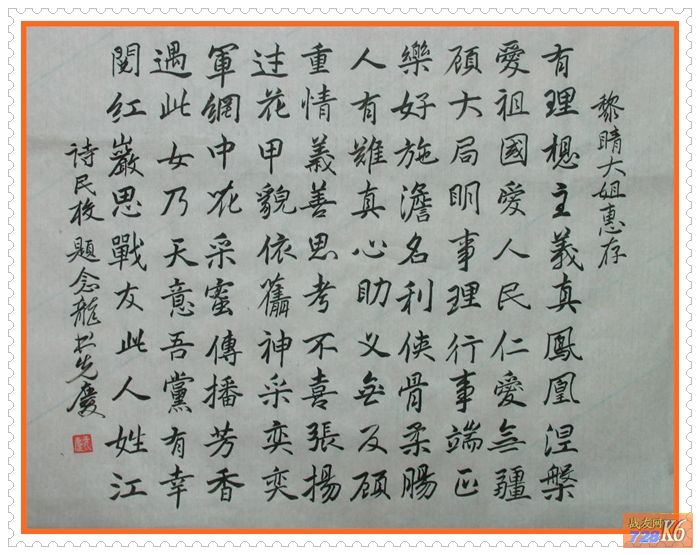 黎晴大姐惠存
有理想主義真鳳凰涅槃
愛祖國愛人民仁愛無疆
顾大局明事理行事端正
樂好施澹名利侠骨柔腸
人有難真心助义無反顾
重情義善思考不喜張揚
过花甲貌依舊神采奕奕
軍網中花采蜜傳播芳香
遇此女乃天意吾黨有幸
閱红巖思戰友此人姓江
詩民題念龍书慶
战友网
728K6